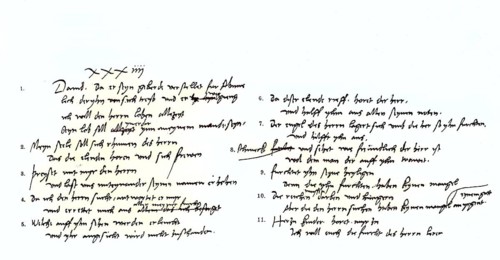 XXXiiij
1. Da er seyn geberde verstellet fur Abime
lich der yhn von sich treyb und er
Ich will den herrn loben
Seyn lob soll ynn meynem munde seyn
2. Meyn seele soll sich rhumen des herrn
Das die elenden horen und sich frewen
3. Preyset mit myr den herrn
und last uns miteynander seynen namen erheben
4. Da ich den herrn sucht, antwortet er myr
und errettet mich aus
5. Wilche auff yhn sehen werden erleucht
und yhr angesicht wird nicht zu schanden.
6. Da diser elende rieff, horet der herr,
und halff yhm aus allen seynen noten.
7. Der engel des herrn lagert sich umb die her so yhn furchten,
und hilfft yhn aus.
8. Schmeckt und sehet wie freundlich der herr ist
wol dem man der auff yhn trawet.
9. furchtet yhn seyne heyligen
denn die yhn furchten haben keynen mangel
10. Die reichen darben und hungern
Aber die den herrn suchen haben keynen mangel
11. kinder horet myr zu
Ich will euch die furcht des herrn leren